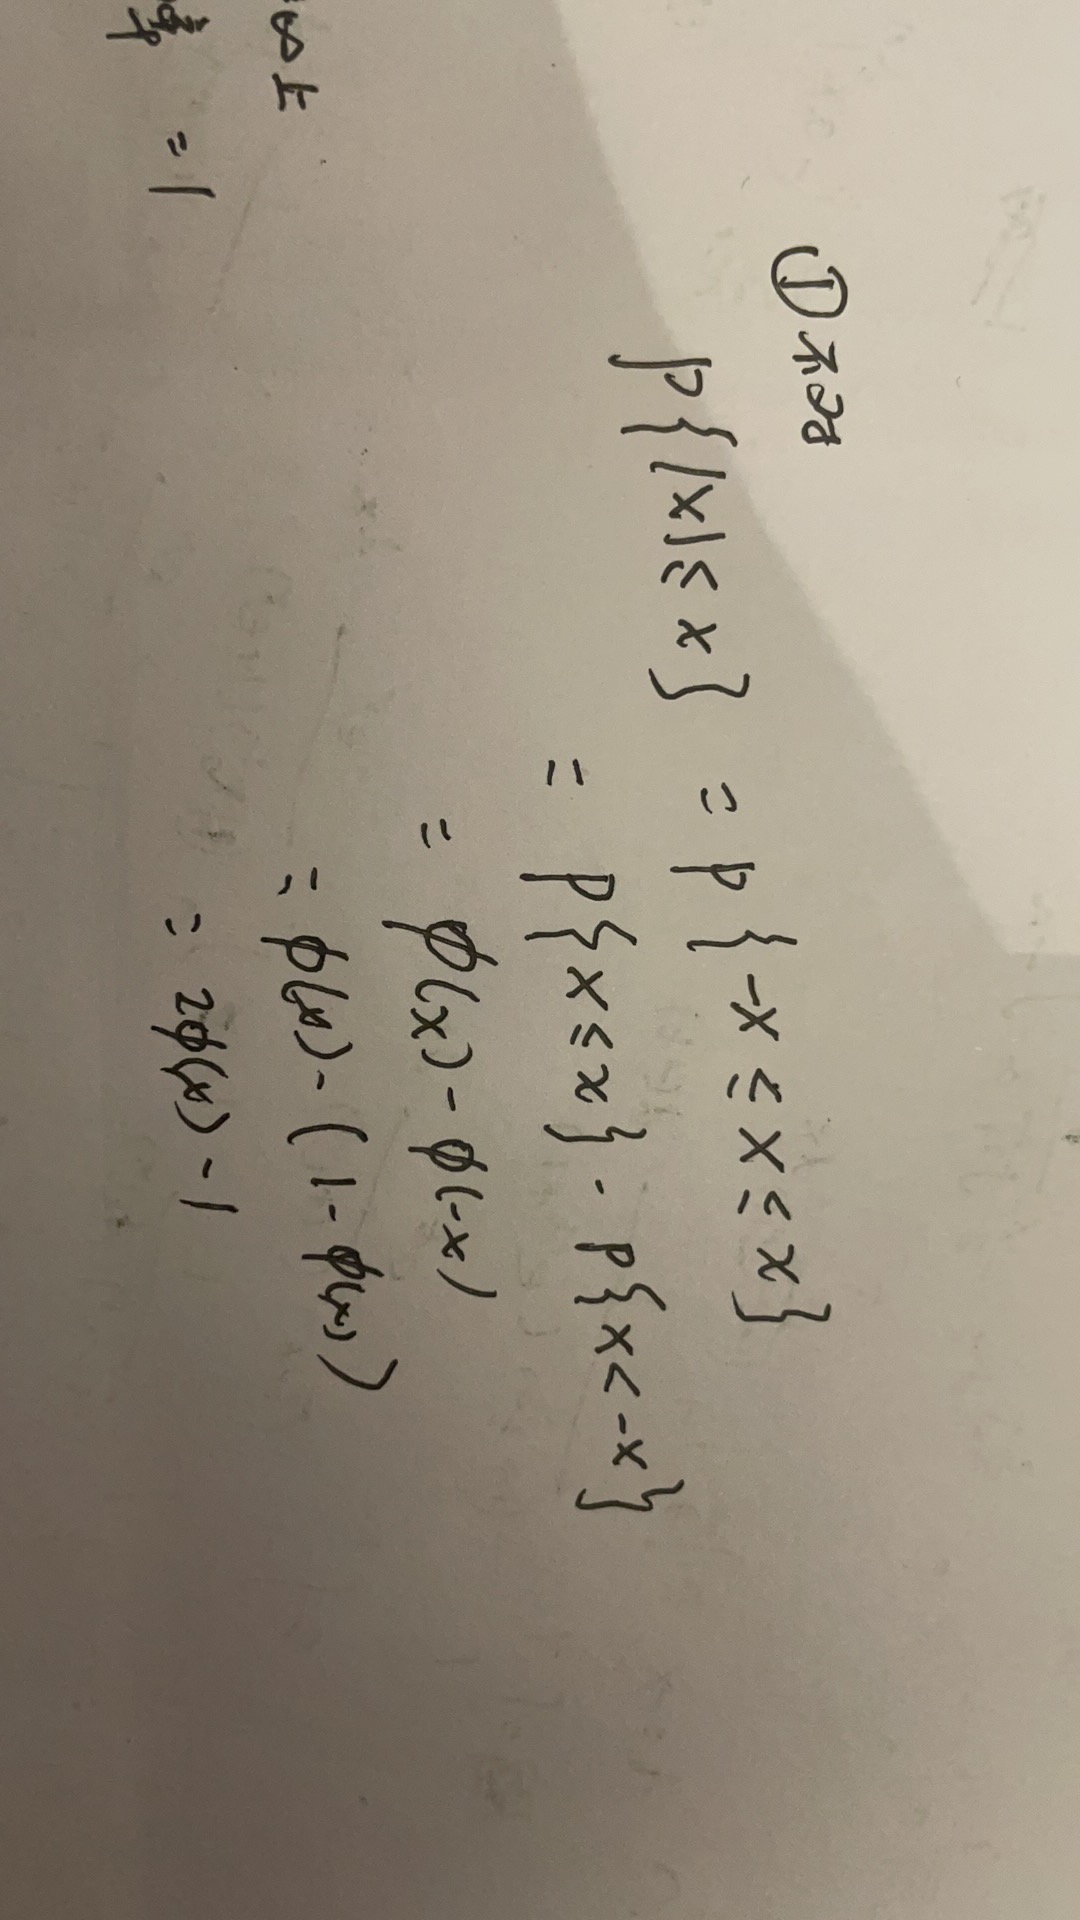 ①
P{|X|≤x} = P{-x≤X≤x}
= P{X≤x} - P{X<-x}
= φ(x) - φ(-x)
= φ(x) - (1-φ(x))
= 2φ(x) - 1
∞上
率 = 1